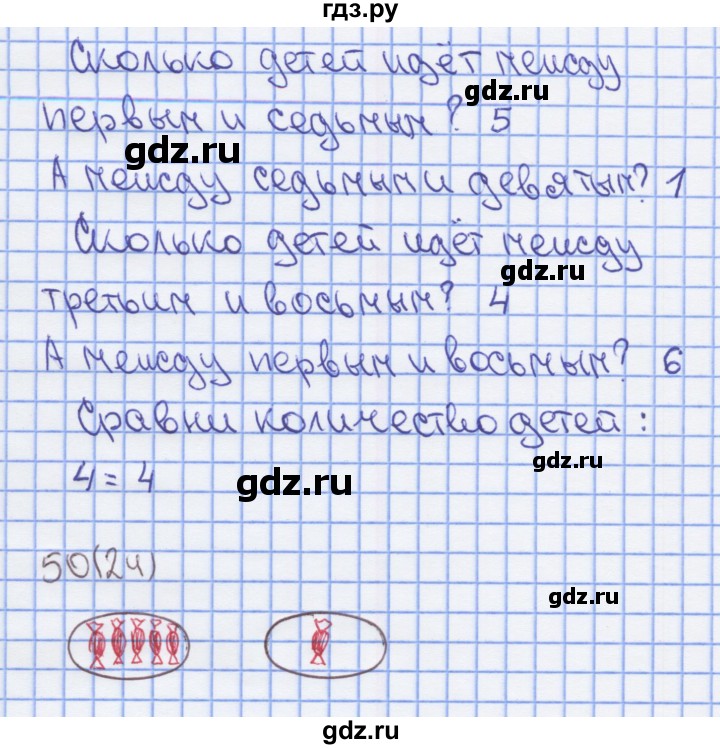 гдз.ру
Сколько детей идёт между
gdz.ru
первым и седьмым? 5
gdz.ru
А между седьмым и девятым? 1
Сколько детей идёт между
gdz.ru
третьим и восьмым? 4
А между первым и восьмым? 6
Сравни количество детей:
gdz.ru
4 = 4
gdz.ru
50(24)
gdz.ru
gdz.ru